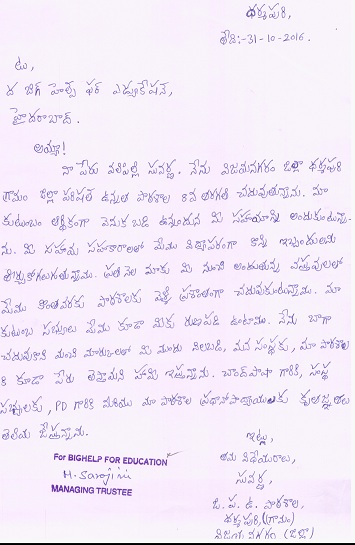 ధర్మపురి,
తేది:-31-10-2016.
టు,
ద బిగ్ హెల్ప్ ఫర్ ఎడ్యుకేషన్,
హైదరాబాద్.
అయ్యా!
నా పేరు వలిపిల్లి సువర్ణ. నేను విజయనగరం జిల్లా ధర్మపురి
గ్రామం జిల్లా పరిషత్ ఉన్నత పాఠశాల 8వ తరగతి చదువుతున్నాను. మా
కుటుంబం ఆర్థికంగా వెనుకబడి ఉన్నందున మీ సహాయాన్ని అందుకుంటున్నా
ను. మీ సహాయ సహకారాలతో మేము విద్యాపరంగా కొన్ని ఇబ్బందులను
తీర్చుకోగలుగుతున్నాము. ప్రతినెల మాకు మీ నుంచి అందుతున్న వస్తువులలో
మేము కొంతవరకు పాఠశాలకు వెళ్లి ప్రశాంతంగా చదువుకుంటున్నాము. మా
కుటుంబ సభ్యులు మేము కూడా మీకు రుణపడి ఉంటాము. నేను బాగా
చదువుకొని మంచి మార్కులతో మీ ముందు నిలబడి, మన సంస్థకు, మా పాఠశాల
కి కూడా పేరు తెస్తామని హామీ ఇస్తున్నాను. చాంద్ పాషా గారికి, సంస్థ
సభ్యులకు, PD గారికి మరియు మా పాఠశాల ప్రధానోపాధ్యాయులకు కృతజ్ఞతలు
తెలియజేస్తున్నాను.
ఇట్లు,
తమ విధేయురాలు,
సువర్ణ,
జి. ప. ఉ. పాఠశాల,
ధర్మపురి, (గ్రామం)
విజయనగరం (జిల్లా)
For BIGHELP FOR EDUCATION
H. Sarojini
MANAGING TRUSTEE